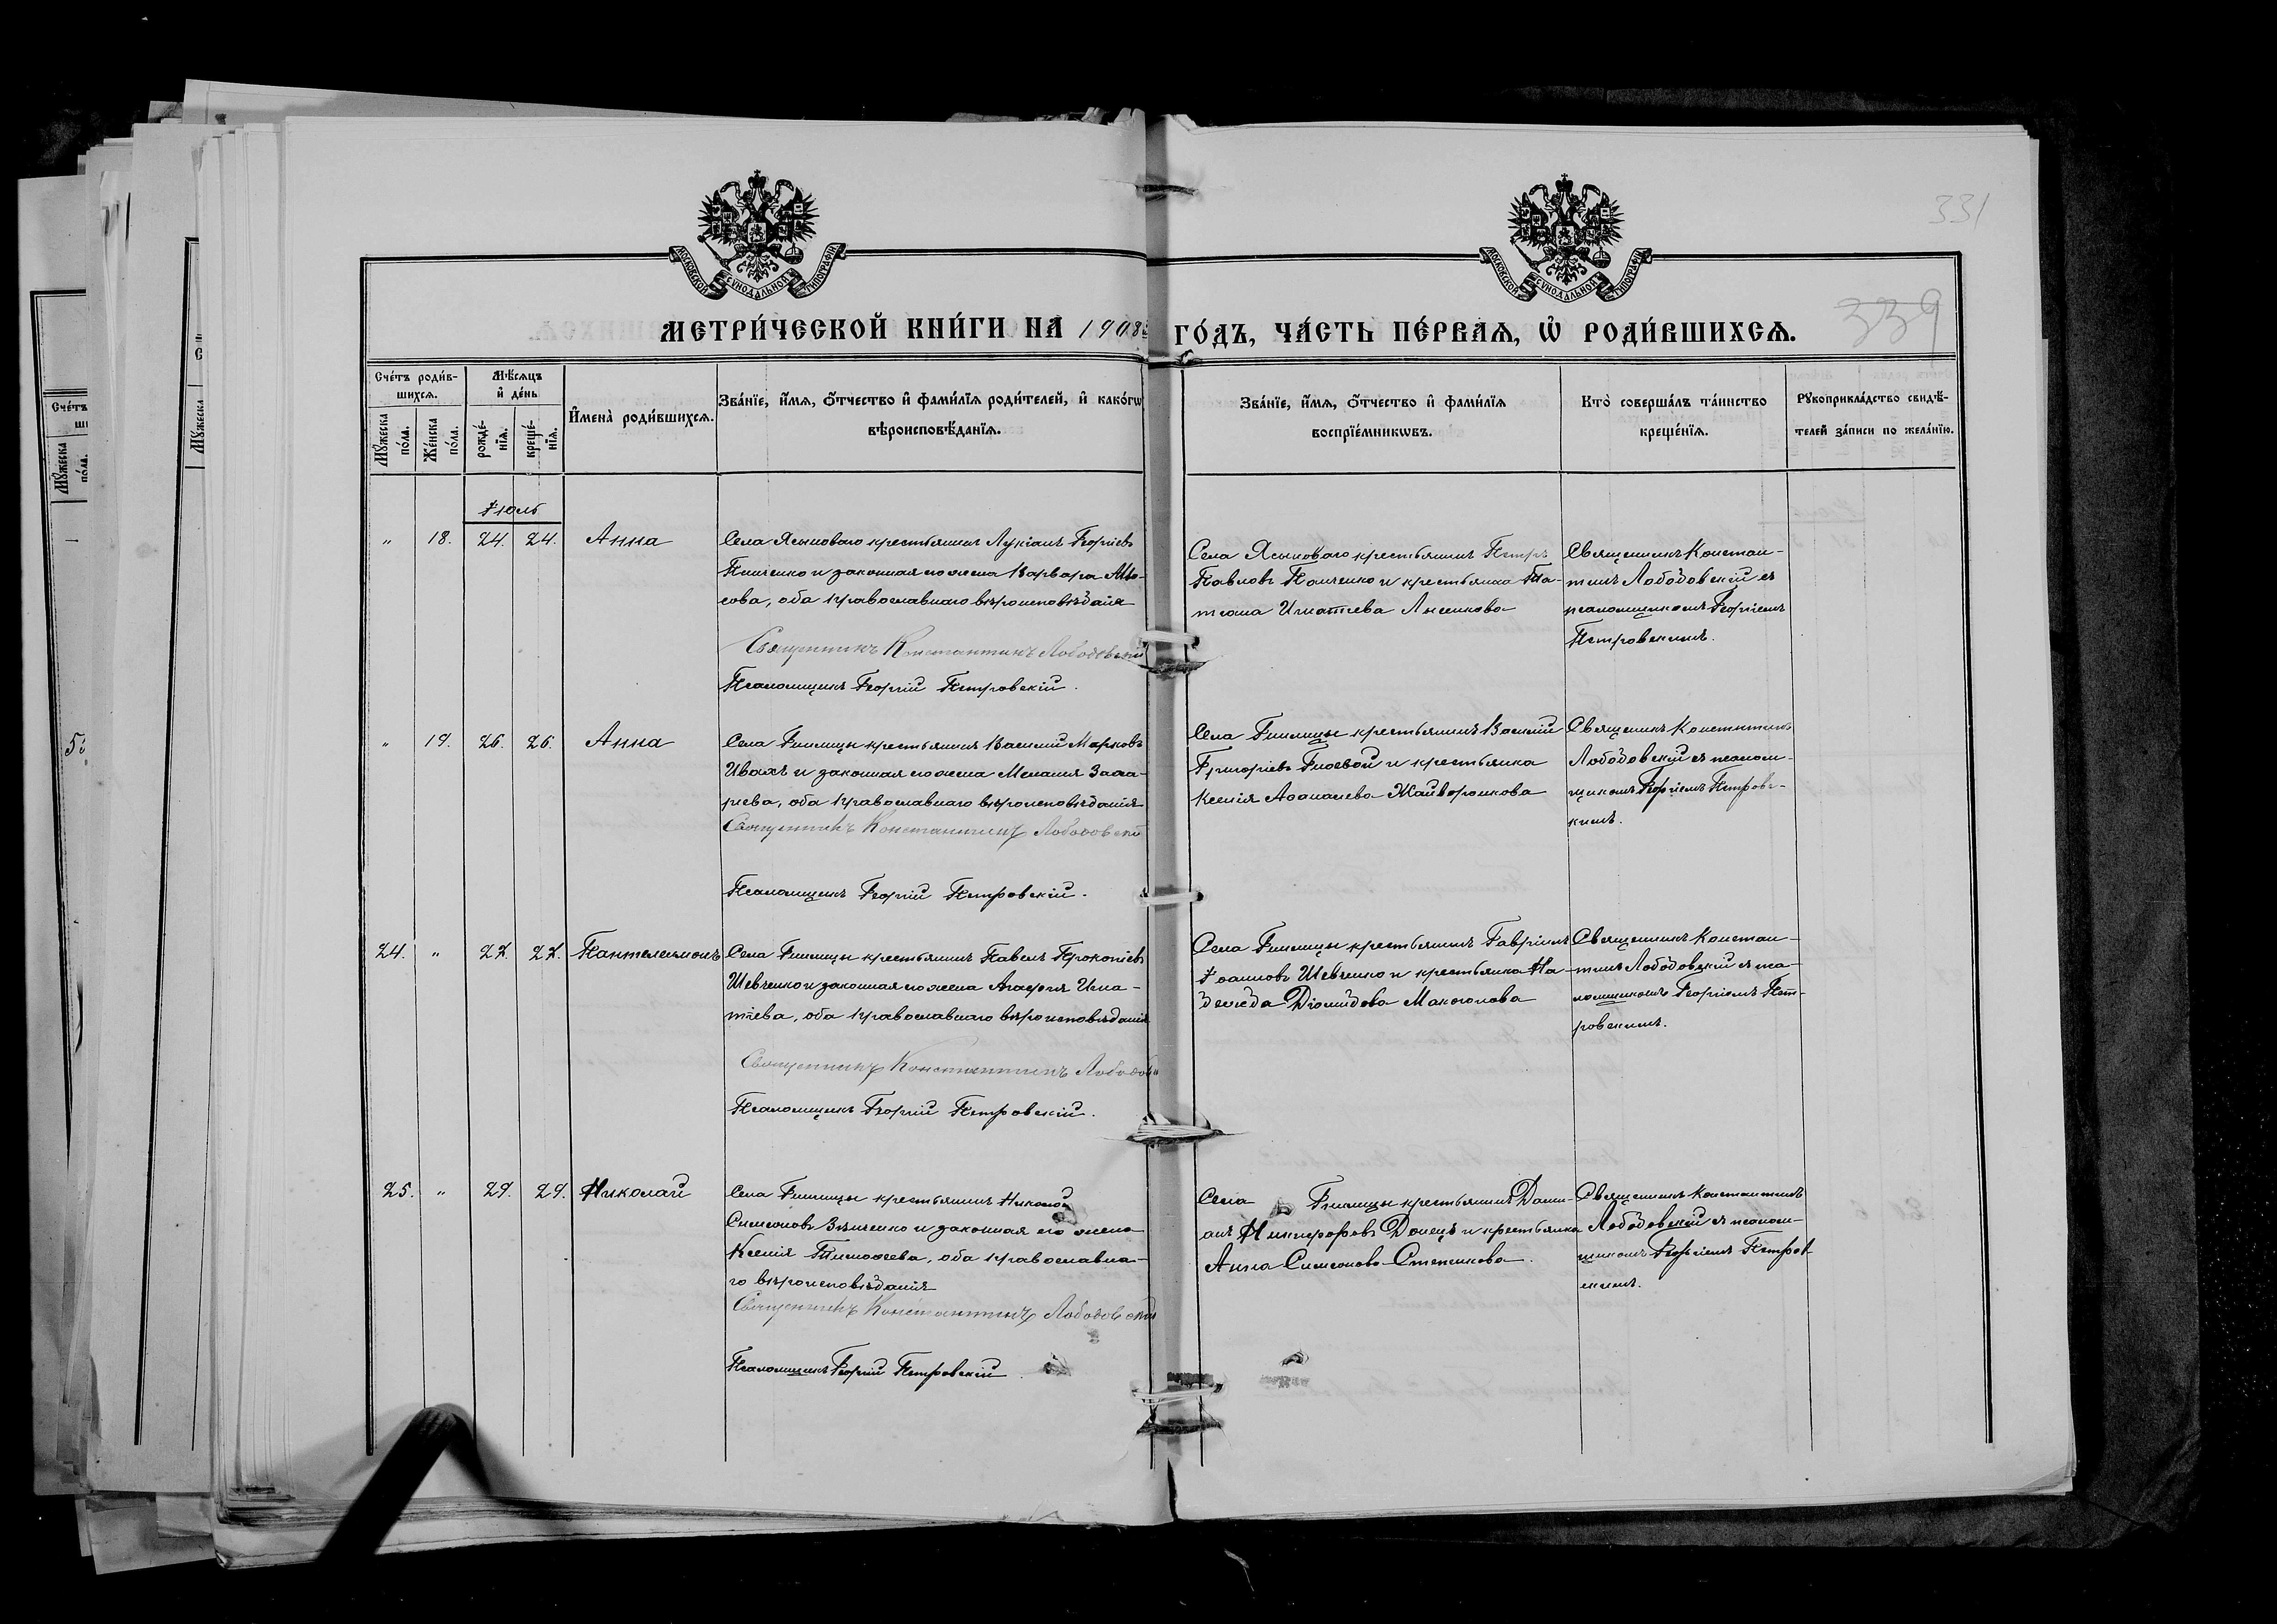 331
МОСКОВСКОЙ СУНОДАЛЬНОЙ ТИПОГРАФІИ
МОСКОВСКОЙ СУНОДАЛЬНОЙ ТИПОГРАФІИ
339
МЕТРИ́ЧЕСКОЙ КНИ́ГИ НА 1908й ГО́ДЪ, ЧА́СТЬ ПЕ́РВАѦ, Ѡ҆ РОДИ́ВШИХСѦ.
Сче́тъ роди́в-
шихсѧ.
Мѣ́сѧцъ
и҆ де́нь
Мꙋ́жеска
по́ла.
Же́нска
по́ла.
рожде́-
нїѧ.
креще́-
нїѧ.
И҆мена̀ роди́вшихсѧ.
Зва́нїе, и҆́мѧ, ѻ҆́тчество и҆ фами́лїѧ роди́телей, и҆ како́гѡ
вѣроисповѣ́данїѧ.
Зва́нїе, и҆́мѧ, ѻ҆́тчество и҆ фами́лїѧ
воспрїе́мникѡвъ.
Кто̀ соверша́лъ та́инство
креще́нїѧ.
Рꙋкоприкла́дство свидѣ́-
телей за́писи по жела́нїю.
Іюль
" 18. 24. 24. Анна
Села Ясыноваго крестьянинъ Лукіанъ Георгіевъ
и законная его жена Варвара Мо-
сова, оба православнаго вѣроисповѣданія
Священникъ Константинъ Лободовскій
Псаломщикъ Георгій Петровскій.
Села Ясыноваго крестьянинъ Петръ
Павловъ Панченко и крестьянка Та-
тіана Игнатіева Лысенкова
Священникъ Констан-
тинъ Лободовскій съ
псаломщикомъ Георгіемъ
Петровскимъ.
" 19. 26. 26. Анна
Села Гнилицы крестьянинъ Василій Марковъ
Ивахъ и законная его жена Меланія Заха-
ріева, оба православнаго вѣроисповѣданія
Священникъ Константинъ Лободовскій
Псаломщикъ Георгій Петровскій.
Села Гнилицы крестьянинъ Василій
Григоріевъ Гноевой и крестьянка
Ксенія Аѳанасіева Жайворонкова
Священникъ Константинъ
Лободовскій съ псалом-
щикомъ Георгіемъ Петровс-
кимъ.
24. " 27. 27. Пантелеимонъ
Села Гнилицы крестьянинъ Павелъ Прокопіевъ
Шевченко и законная его жена Агафія Игна-
тіева, оба православнаго вѣроисповѣданія
Священникъ Константинъ Лободовскій
Псаломщикъ Георгій Петровскій.
Села Гнилицы крестьянинъ Гавріилъ
Іоанновъ Шевченко и крестьянка На-
дежда Діомидова Макогонова
Священникъ Констан-
тинъ Лободовскій съ пса-
ломщикомъ Георгіемъ Пет-
ровскимъ.
25. " 29. 29. Николай
Села Гнилицы крестьянинъ Николай
Симеоновъ Зѣнченко и законная его жена
Ксенія Тимоѳеева, оба православна-
го вѣроисповѣданія
Священникъ Константинъ Лободовскій
Псаломщикъ Георгій Петровскій
Села Гнилицы крестьянинъ Дами-
анъ Никифоровъ Донецъ и крестьянка
Анна Симеонова Степенкова.
Священникъ Константинъ
Лободовскій съ псалом-
щикомъ Георгіемъ Петров-
скимъ.